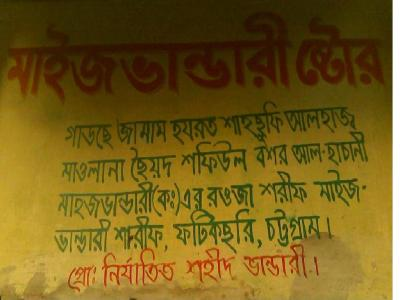 মাইজভান্ডারী ষ্টোর
গাউছে জামাম হযরত শাহছুফি আলহাজ্ব
মাওলানা ছৈয়দ শফিউল বশর আল-হাচানী
মাইজভান্ডারী(কঃ)এর রওজা শরীফ মাইজ-
ভান্ডারী শরীফ, ফটিকছরি, চট্টগ্রাম।
প্রোঃ নির্যাতিত শহীদ ভান্ডারী।